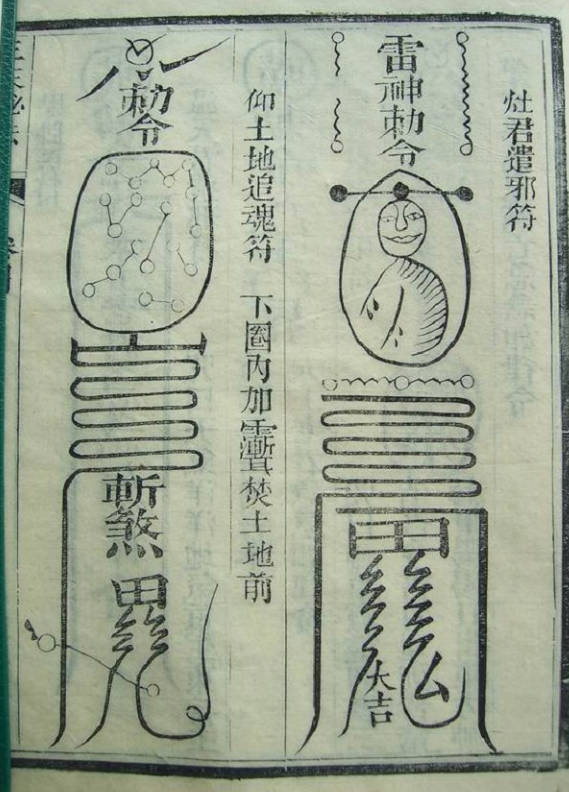 灶君遣邪符
雷神勅令
田
大吉
仰土地追魂符 下圈內加焚土地前
勅令
斬煞
田